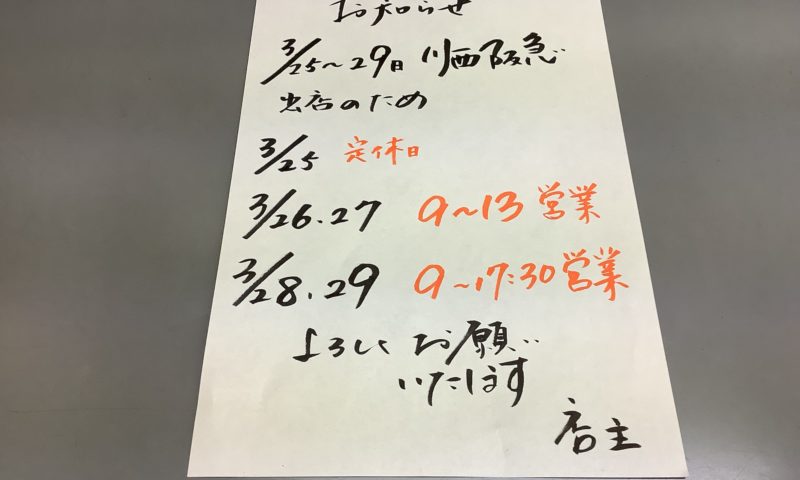 お知らせ
3/25~29日 川西阪急
出店のため
3/25 定休日
3/26.27 9~13営業
3/28.29 9~17:30営業
よろしくお願い
いたします
店主